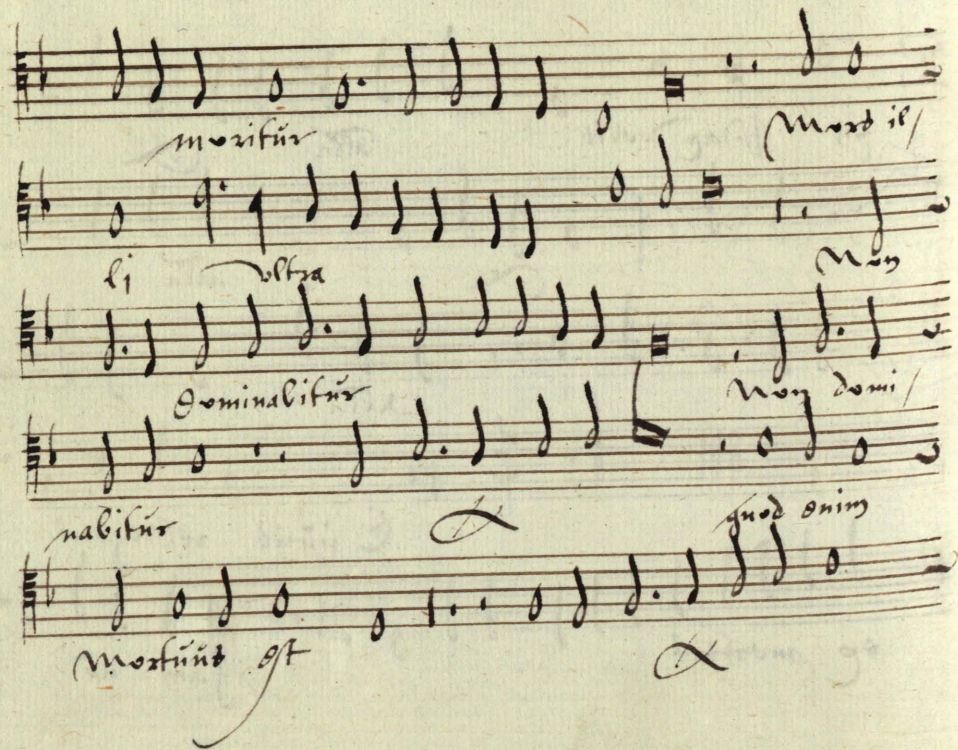 moritur Mors il/
li ultra Non
Dominabitur Non domi/
nabitur quod enim
Mortuus est